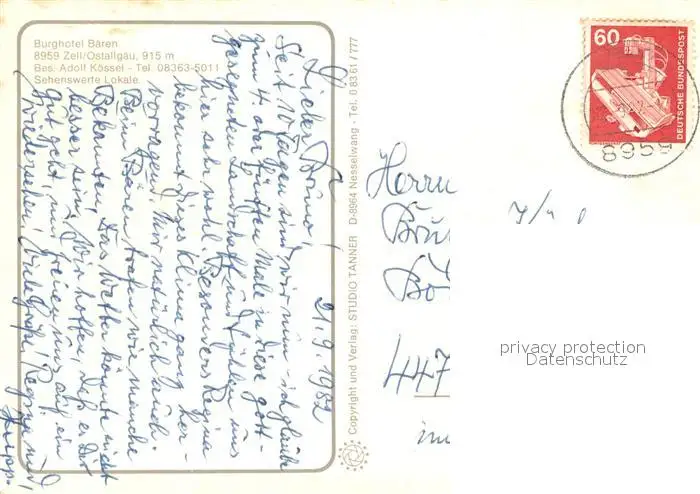 Burghotel Bären
8959 Zell/Ostallgäu, 915 m
Bes. Adolf Kössel - Tel. 08363-5011
Sehenswerte Lokale
21.9.1982
Lieber Bruno!
Seit 10 Tagen sind wir nun - ich glaube
zum 4. oder fünften Male in diese gott-
gesegneten Landschaft und fühlen uns
hier sehr wohl. Besonders Regina
bekommt dieses Klima ganz her-
vorragend. Mir natürlich auch.
Beim Bären trafen wir manche
Bekannten. Das Wetter könnte nicht
besser sein. Wir hoffen, daß es Dir
gut geht, und freuen uns auf ein
Wiedersehen! Viele Grüße! Regina und
Copyright und Verlag: STUDIO TANNER D-8964 Nesselwang - Tel. 0 83 61 / 777
60
DEUTSCHE BUNDESPOST
8959
Herrn
447
im
privacy protection
Datenschutz